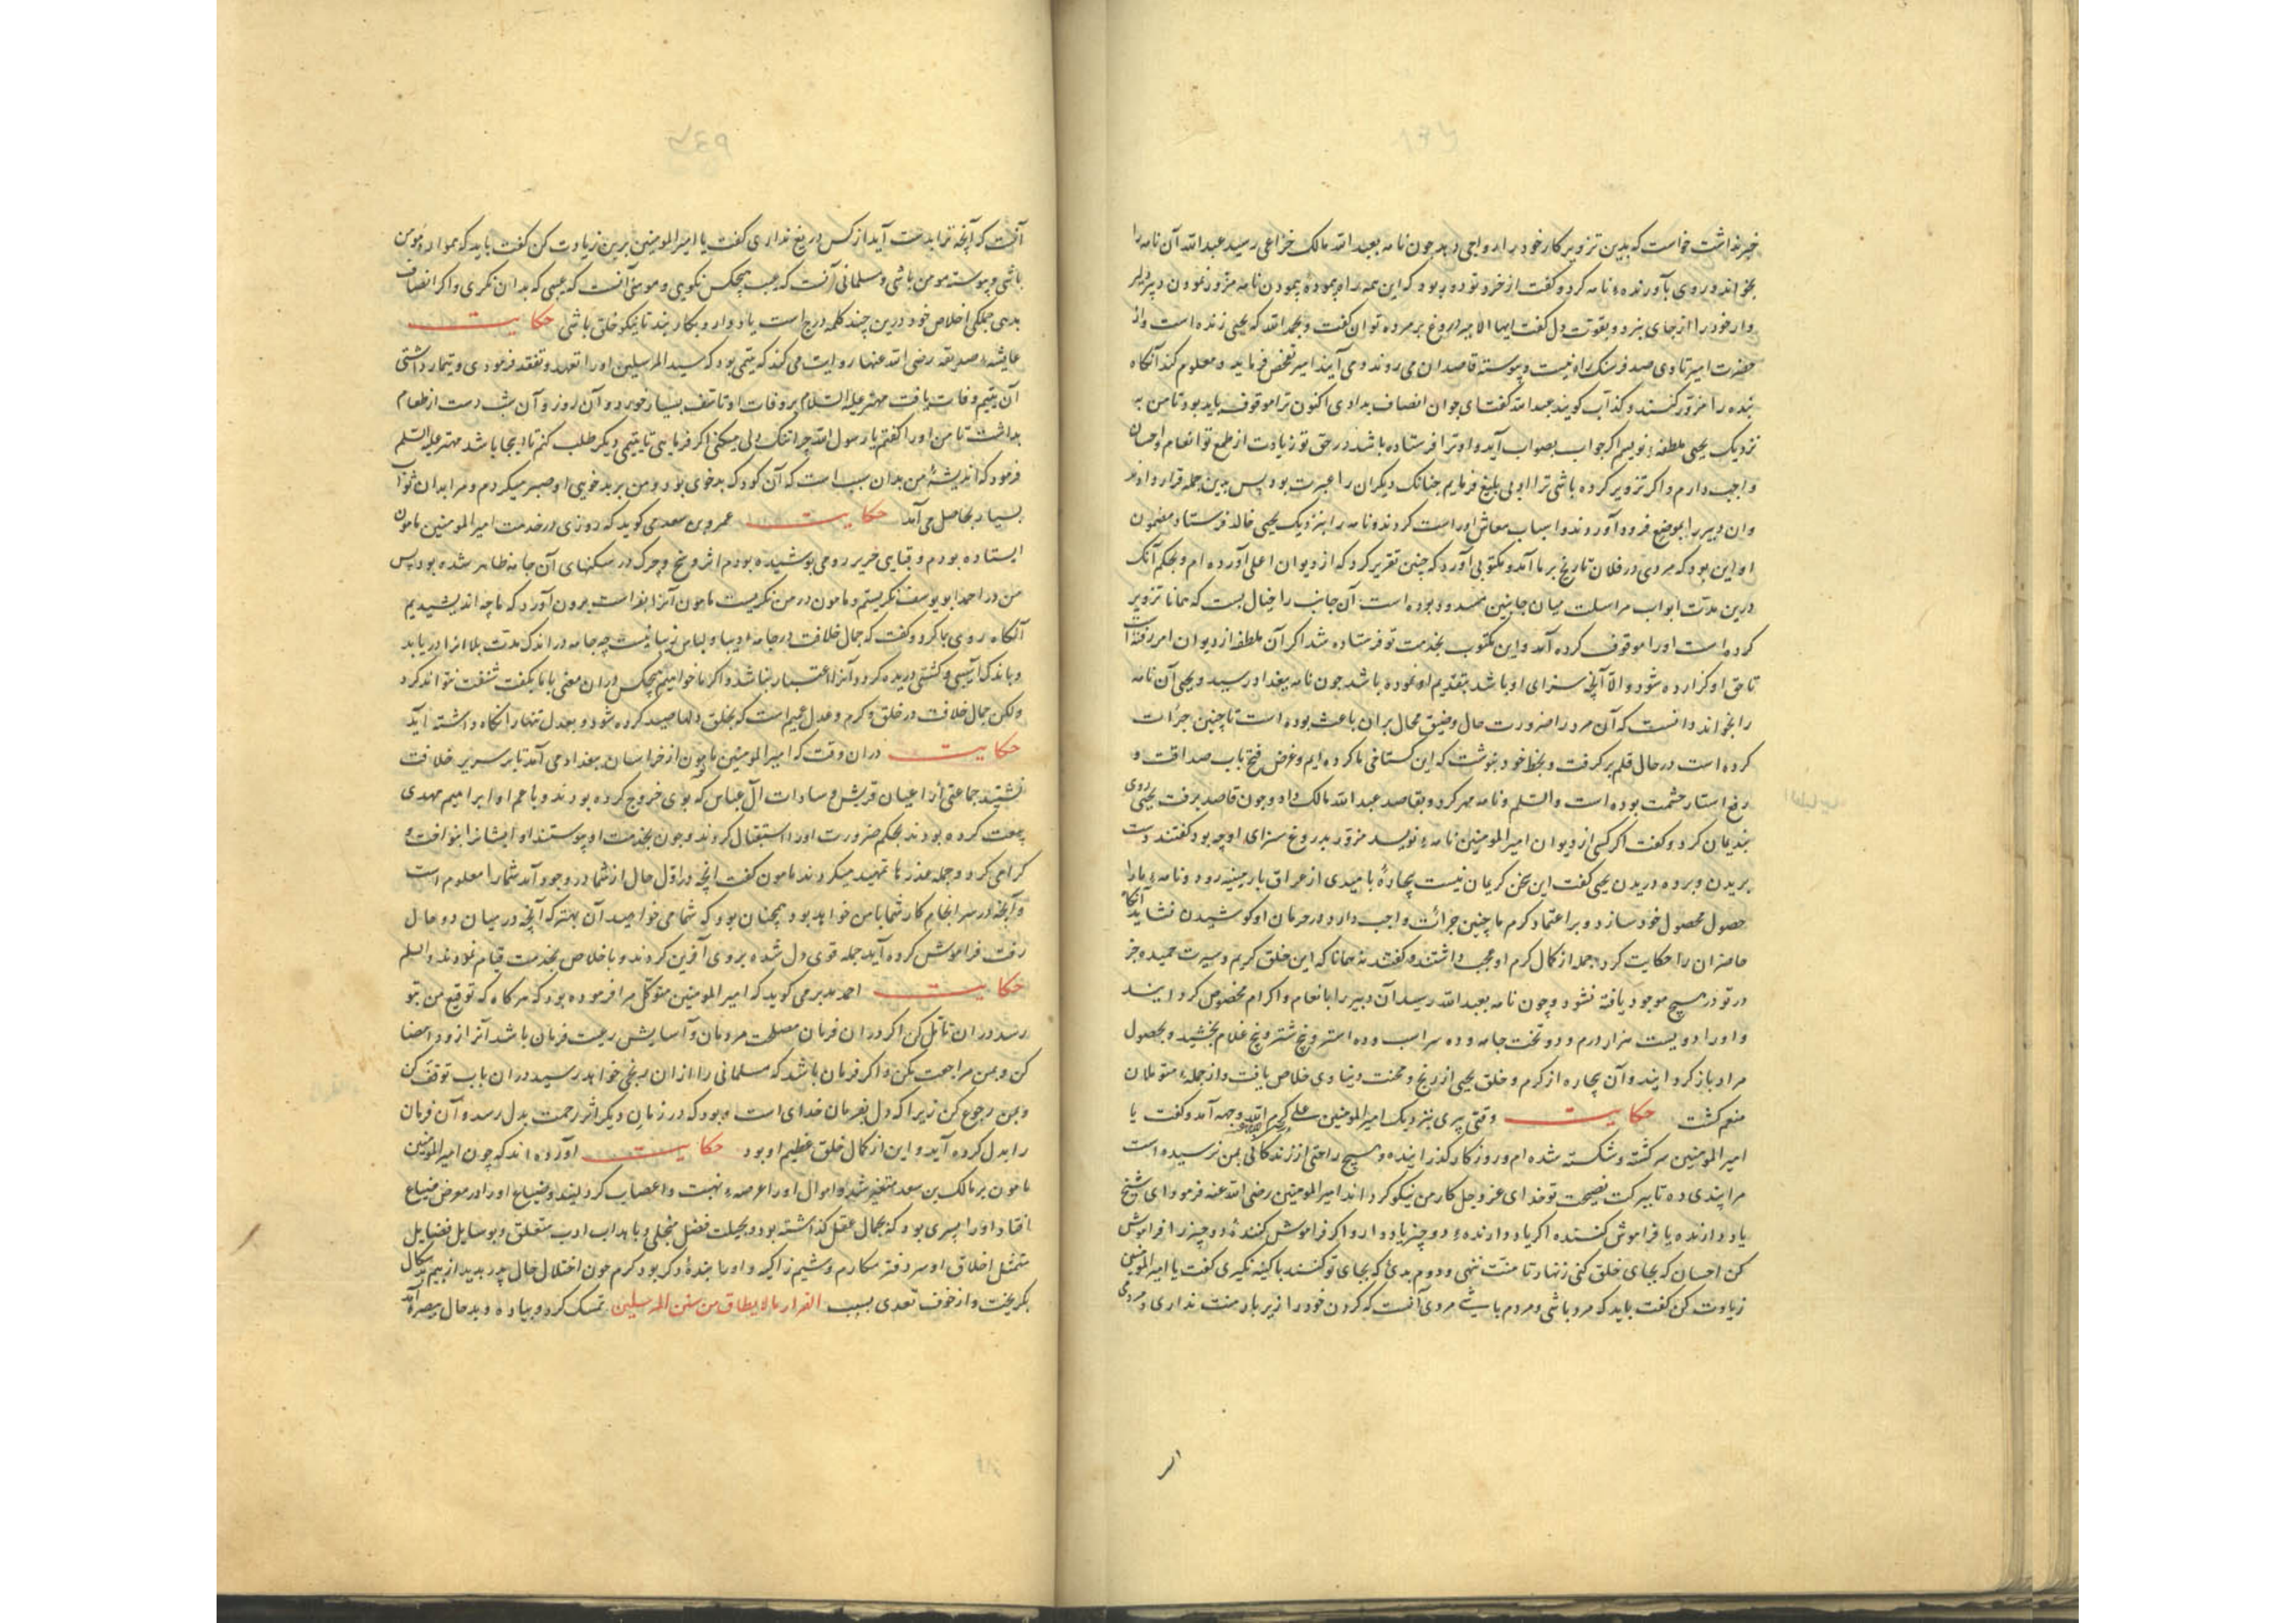 خبر نداشت خواست که بدین تزویر کار خود را رواجی دهد چون نامه بعبد الله مالک خزاعی رسید عبد الله آن نامه را
بخواند و روی بآورنده نامه کرد و گفت از خرد تو دور بود که این همه راه پیموده نامه مزور نمودن دبیر دلیر
وار خود را از جای نبرد و بقوت دل گفت ایها الامیر دروغ بر مرده توان گفت و بحمد الله که یحیی زنده است و از
حضرت امیر تا وی صد فرسنک راه نیست و پیوسته قاصدان می روند و می آیند امیر تفحص فرماید و معلوم کند آنکاه
بنده را مزور کنند و کذاب کویند عبد الله گفت ای جوان انصاف بدادی اکنون ترا موقوف باید بود تا من به
نزدیک یحیی ملطفه نویسم اکر جواب بصواب آید و او ترا فرستاده باشد در حق تو زیادت از طمع تو انعام و احسان
واجب دارم و اکر تزویر کرده باشی ترا ادبی بلیغ فرمایم چنانک دیکران را عبرت بود پس بدین جمله قرار دادند
و ان دبیر را بموضع فرود آوردند و اسباب معاش او راست کردند و نامه را بنزدیک یحیی خالد فرستاد مضمون
او این بود که مردی در فلان تاریخ بر ما آمد و مکتوبی آورد که چنین تقریر کرد که از دیوان اعلی آورده ام و بحکم آنک
درین مدت ابواب مراسلت میان جانبین مسدود بوده است آن جانب را خیال بست که همانا تزویر
کرده است او را موقوف کرده آمد و این مکتوب بخدمت تو فرستاده شد اکر آن ملطفه از دیوان امر رفته است
تا حق او کزارده شود و الا آنچه سزای او باشد بتقدیم او نموده باشد چون نامه ببغداد رسید و یحیی آن نامه
را بخواند دانست که آن مرد را ضرورت حال و ضیق مجال بران باعث بوده است تا چنین جرأت
کرده است در حال قلم بر کرفت و بخط خود بنوشت که این کستاخی ما کرده ایم و غرض فتح باب صداقت و
رفع استار حشمت بوده است و السلم و نامه مهر کرد و بقاصد عبد الله مالک داد و چون قاصد برفت یحیی روی
بندیمان کرد و گفت اکر کسی از دیوان امیر المومنین نامه نویسد مزور بدروغ سزای او چه بود گفتند دست
بریدن و پرده دریدن یحیی گفت این سخن کریمان نیست بیچاره بامیدی از عراق بارمینیه رود و نامه ما را
حصول محصول خود سازد و بر اعتماد کرم ما چنین جرأت واجب دارد در حرمان او کوشیدن نشاید آنکاه
حاضران را حکایت کرد جمله از کمال کرم او عجب داشتند و گفتند همانا که این خلق کریم و سیرت حمید جز
در تو در هیچ موجود یافته نشود و چون نامه بعبد الله رسید آن دبیر را بانعام و اکرام مخصوص کردانید
و او را دویست هزار درم و دو تخت جامه و ده سر اسب و ده استر و پنج شتر و پنج غلام بخشید و بحصول
مراد باز کردانید و آن بیچاره از کرم و خلق یحیی از رنج و محنت دنیاوی خلاص یافت و از جمله متمولان
منعم کشت حکایت وقتی پیری بنزدیک امیر المومنین علی کرم الله وجهه آمد و گفت یا
امیر المومنین سرکشته و شکسته شده ام و روزکار کذرانیده و هیچ راحتی از زندکانی بمن نرسیده است
مرا پندی ده تا ببرکت نصیحت تو خدای عز و جل کار من نیکو کرداند امیر المومنین رضی الله عنه فرمود ای شیخ
یاد دارنده یا فراموش کننده اکر یاد دارنده دو چیز یاد دار و اکر فراموش کننده دو چیز را فراموش
کن احسان که بجای خلق کنی زنهار تا منت ننهی و دوم بدی که بجای تو کنند با کینه نکیری گفت یا امیر المومنین
زیادت کن گفت باید که مرد باشی و مردم باشی مردی آنست که کردن خود را زیر بار منت نداری و مردمی
آنست که آنچه ترا بدست آید از کس دریغ نداری گفت یا امیر المومنین برین زیادت کن گفت باید که همواره مومن
باشی و پیوسته مومن باشی و مسلمانی آنست که عیب هیچکس نکویی و مومنی آنست که عیبی که بدان نکری و اکر انصاف
بدهی جملکی اخلاص خود درین چند کلمه درج است یاد دار و بکار بند تا نیکو خلق باشی حکایت
عایشه صدیقه رضی الله عنها روایت می کند که یتیمی بود که سید المرسلین او را تعهد و تفقد فرمودی و تیمار داشتی
آن یتیم وفات یافت مهتر علیه السلام بر وفات او تاسف بسیار خورد و آن روز و آن شب دست از طعام
بداشت تا من او را کفتم یا رسول الله چرا تنک دلی میکنی اکر فرمایی تا یتیمی دیکر طلب کنم تا اینجا باشد مهتر علیه السلم
فرمود که اندیشه من بدان سبب است که آن کودک بدخوی بود و من بر بدخویی او صبر میکردم و مرا بدان ثواب
بسیار بحاصل می آمد حکایت عمرو بن سعدی کوید که روزی در خدمت امیر المومنین مامون
ایستاده بودم و قبای حریر رومی پوشیده بودم اثر وسخ و چرک در شکنهای آن جامه ظاهر شده بود پس
من در احمد ابو یوسف نکریستم و مامون در من نکریست مامون آنرا بفراست برون آورد که ما چه اندیشیدیم
آنکاه روی بما کرد و گفت که جمال خلافت در جامه دیبا و لباس زیبا نیست چه جامه در اندک مدت بلا انرا دریابد
و باندک آسیبی و کشتی دریده کردد آنرا اعتبار نباشد و اکر ما خواهیم هیچکس دران معنی با ما نتواند کرد
ولکن جمال خلافت در خلق و کرم و عدل عمیم است که بخلق دلها صید کرده شود و بعدل تنها را نکاه داشته آید
حکایت دران وقت که امیر المومنین مامون از خراسان ببغداد می آمد تا بر سریر خلافت
نشیند جماعتی از اعیان قریش و سادات آل عباس که بر وی خروج کرده بودند و با عم او ابراهیم مهدی
بیعت کرده بودند بحکم ضرورت او را استقبال کردند و چون بخدمت او پیوستند او ایشانرا بنواخت و
کرامی کرد و جمله عذرها تمهید میکردند مامون گفت آنچه در اول حال از شما در وجود آمد شما را معلوم است
و آنچه در سر انجام کار شما با من خواهد بود همچنان بود که شما می خواهید آن بهتر که آنچه در میان دو حال
رفت فراموش کرده آید جمله قوی دل شده بر وی آفرین کردند و باخلاص بخدمت قیام نمودند و السلم
حکایت احمد مدبر می کوید که امیر المومنین متوکل مرا فرموده بود که هرکاه که توقیع من بتو
رسد دران تامل کن اکر دران فرمان مصلحت مردمان و آسایش رعیت فرمان باشد آنرا زود امضا
کن و بمن مراجعت مکن و اکر فرمان باشد که مسلمانی را ازان رنجی خواهد رسید دران باب توقف کن
و بمن رجوع کن زیرا که دل بفرمان خدای است و بود که در زمان دیکر اثر رحمت بدل رسد و آن فرمان
را بدل کرده آید و این از کمال خلق عظیم او بود حکایت آورده اند که چون امیر المومنین
مامون بر مالک بن سعد متغیر شد و اموال او را عرضه نهب و اغتصاب کردانید و ضیاع او در معرض ضیاع
افتاد او را پسری بود که بجمال عقل آراسته بود و بحیلت فضل متجلی و باهداب ادب متعلق و بوسایل فضایل
متمثل اخلاق او سر دفتر مکارم و شیم زاکیه و او را بود کرم چون اختلال حال پدر بدید از بیم نکال
بکریخت و از خوف تعدی بسبب الفرار مما لا یطاق من سنن المرسلین تمسک کرد و پیاده و بدحال ببصره آمد